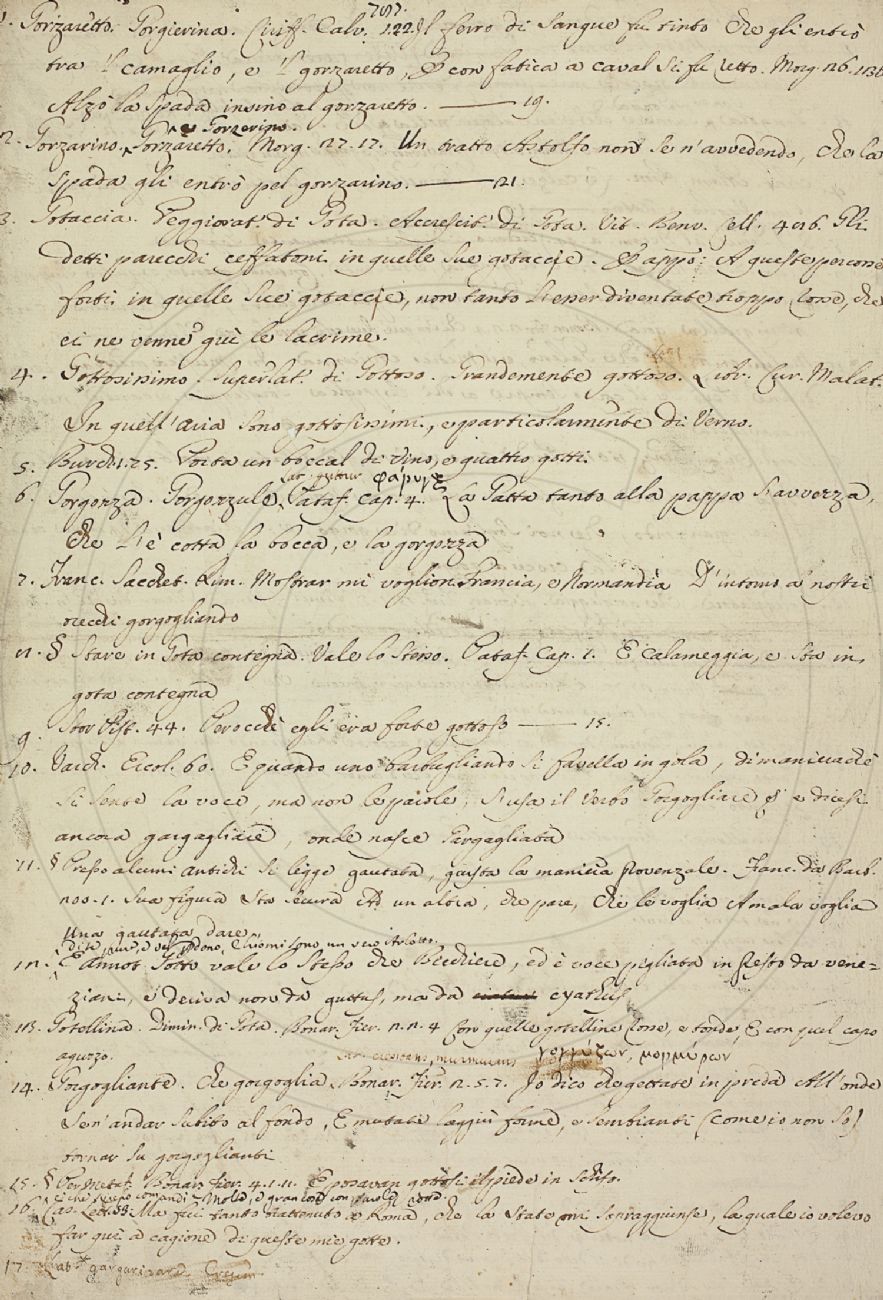 1. Gorzaretto. Gorgierina. Ciriff. Calv. 122. Il ferro di sangue fu tinto che gli entrò
tra 'l camaglio, e 'l gorzaretto, E con fatica a caval si fu retto. Morg. 26. 131
Alzò la spada insino al gorzaretto. —— 19.
e Gorzerino.
2. Gorzarino. Gorzaretto. Morg. 27. 17. Un tratto Astolfo non se n'avvedendo, che la
spada gli entrò pel gorzarino. —— 21.
3. Gotaccia. Peggiorat. di Gota. Accrescit. di Gota. Vit. Benv. Cell. 426. Gli
detti parecchi ceffatoni in quelle sue gotaccie. E appo: A queste percosse
forti in quelle sue gotaccie, non tanto l'esser diventate troppo rosse, che
ei ne venne giù le lacrime.
4. Gottosissimo. Superlat. di Gottoso. Grandemente gottoso. Libr. Cur. Malat.
In quell'aria sono gottosissimi, e particolarmente di Verno.
5. Burch. 1. 25. Porta un boccal di vino, e quattro gotti.
Lat. guttur φάρυγξ
6. Gorgozza. Gorgozzule. Pataf. Cap. 4. La Gatta tanto alla pappa s'avvezza,
che s'è cotta la bocca, e la gorgozza
7. Franc. Sacchet. Rim. Mostrar mi voglion Francia, e Normandia D'intorno a' nostri
orecchi gorgogliando
§ Stare in Gota contegna. Vale lo stesso. Pataf. Cap. 1. E calameggia, e sta in
gota contegna
9. Stor. Pist. 44. Perocchè egli era forte gottoso —— 15.
10. Varch. Ercol. 60. E quando uno barbugliando si favella in gola, di maniera chè
si sente la voce, ma non le parole, s'usa il Verbo Gorgogliare e dicesi
ancora gargagliare, onde nasce Gargagliata
11. § Presso alcuni antichi si legge gautata, giusta la maniera provenzale. Franc. da Barb.
200. 1. Sua figura sta sicura Ad un altra, che pare, che le voglia Amala voglia
Una gautata dare.
12. E Annot. Gotto vale lo stesso che Bicchiere, ed è voce pigliata in presto da vene=
ziani, e deriva non da guttus, ma da cyathus
13. Gotellina. Dimin. di Gota. Bonar. Fier. 2. 2. 4 Con quelle gotelline rosse, e tonde, E con quel capo
aguzzo.
murmurans γογγύζων, μορμύρων
14. Gorgogliante. Che gorgoglia. Bonar. Fier. 2. 5. 7. Io dico che gettate in preda All'onde
Se n'andar subito al fondo, E mutate laggiù forme, e sembianti (come io non so)
tornar su gorgoglianti
15. § Per Metaf. Bonar. Fier. 4. 1. 11. E posavan gottosi il piede in schifo.
16. Car. Lett. Ma fui tanto trattenuto a Roma, che la State mi sopraggiunse, la quale io volevo
far quì a cagione di queste mie gotte.
17.